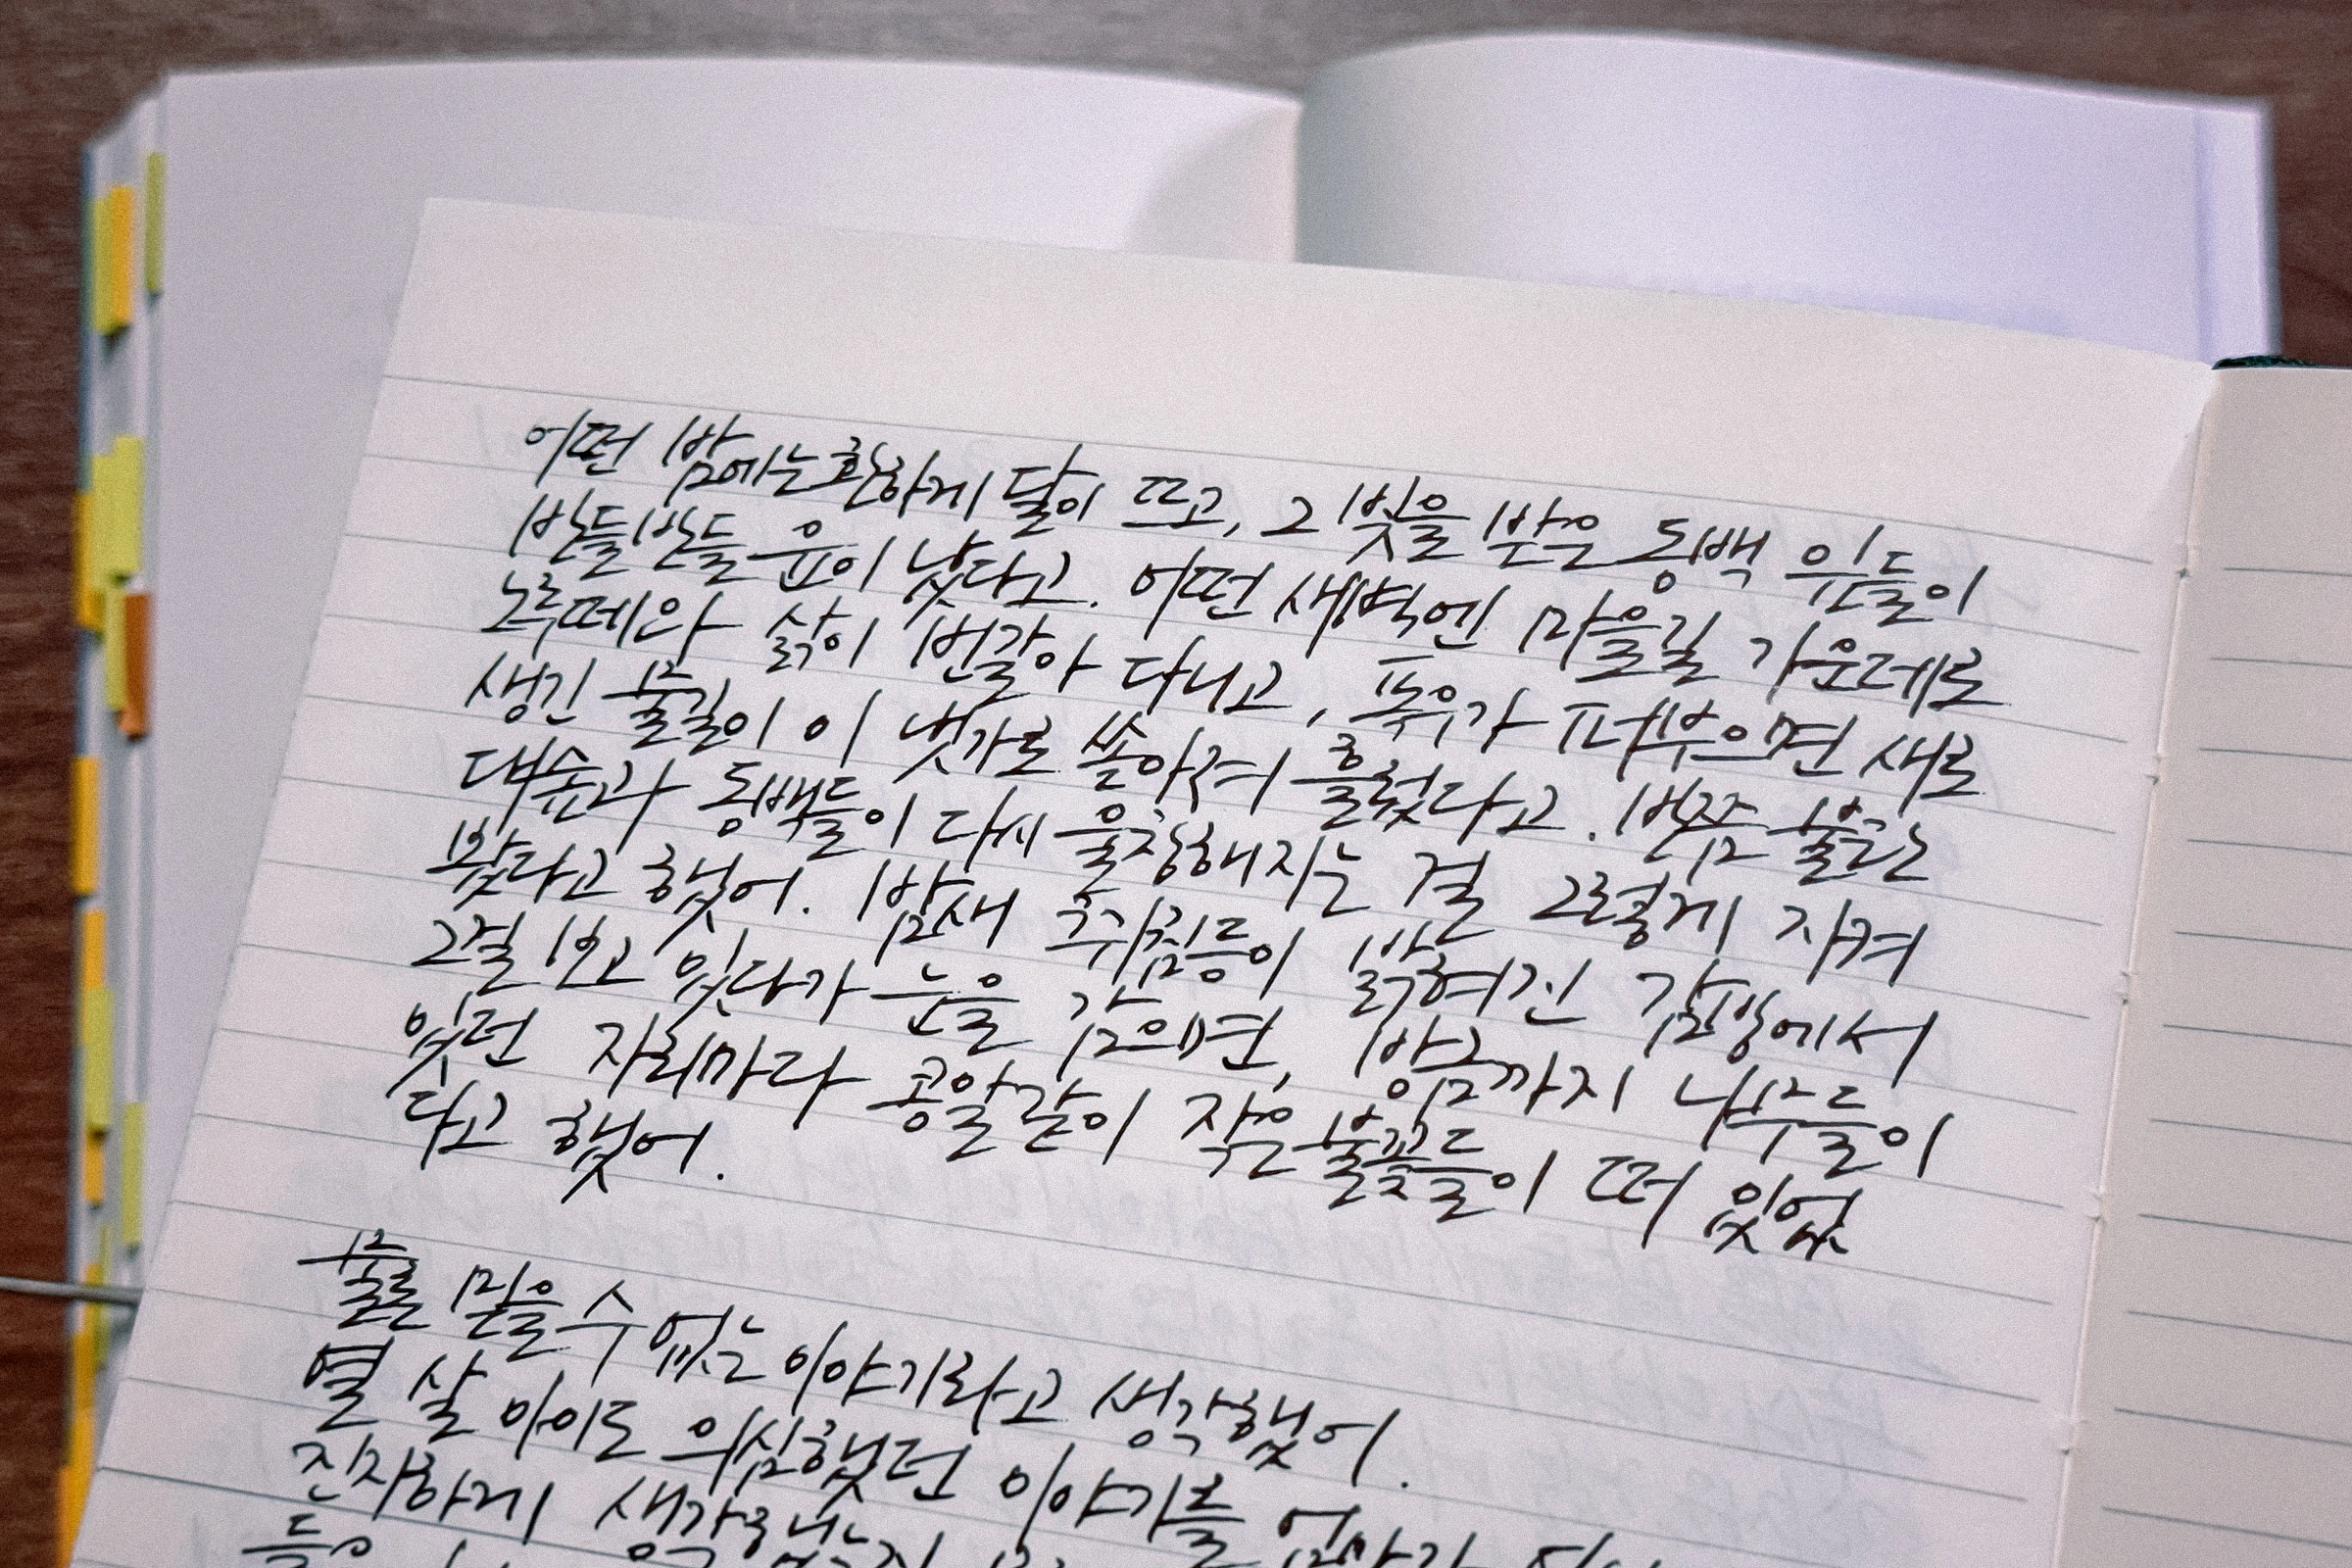 어떤 밤에는 환하게 달이 뜨고, 그 빛을 받은 동백 잎들이
반들반들 윤이 났다고. 어떤 새벽엔 마을길 가운데로
노루떼와 삵이 번갈아 다니고, 폭우가 퍼부으면 새로
생긴 물길이 이 냇가로 쏟아져 흘렀다고. 반쯤 불타는
대숲과 동백들이 다시 울창해지는 걸 그렇게 지켜
봤다고 했어. 밤새 취침등이 밝혀진 감방에서
그걸 보고 있다가 눈을 감으면, 방금까지 나무들이
있던 자리마다 콩알같이 작은 불꽃들이 떠 있었
다고 했어.
물론 믿을 수 없는 이야기라고 생각했어.
열 살 아이도 의심했던 이야기를
진지하게